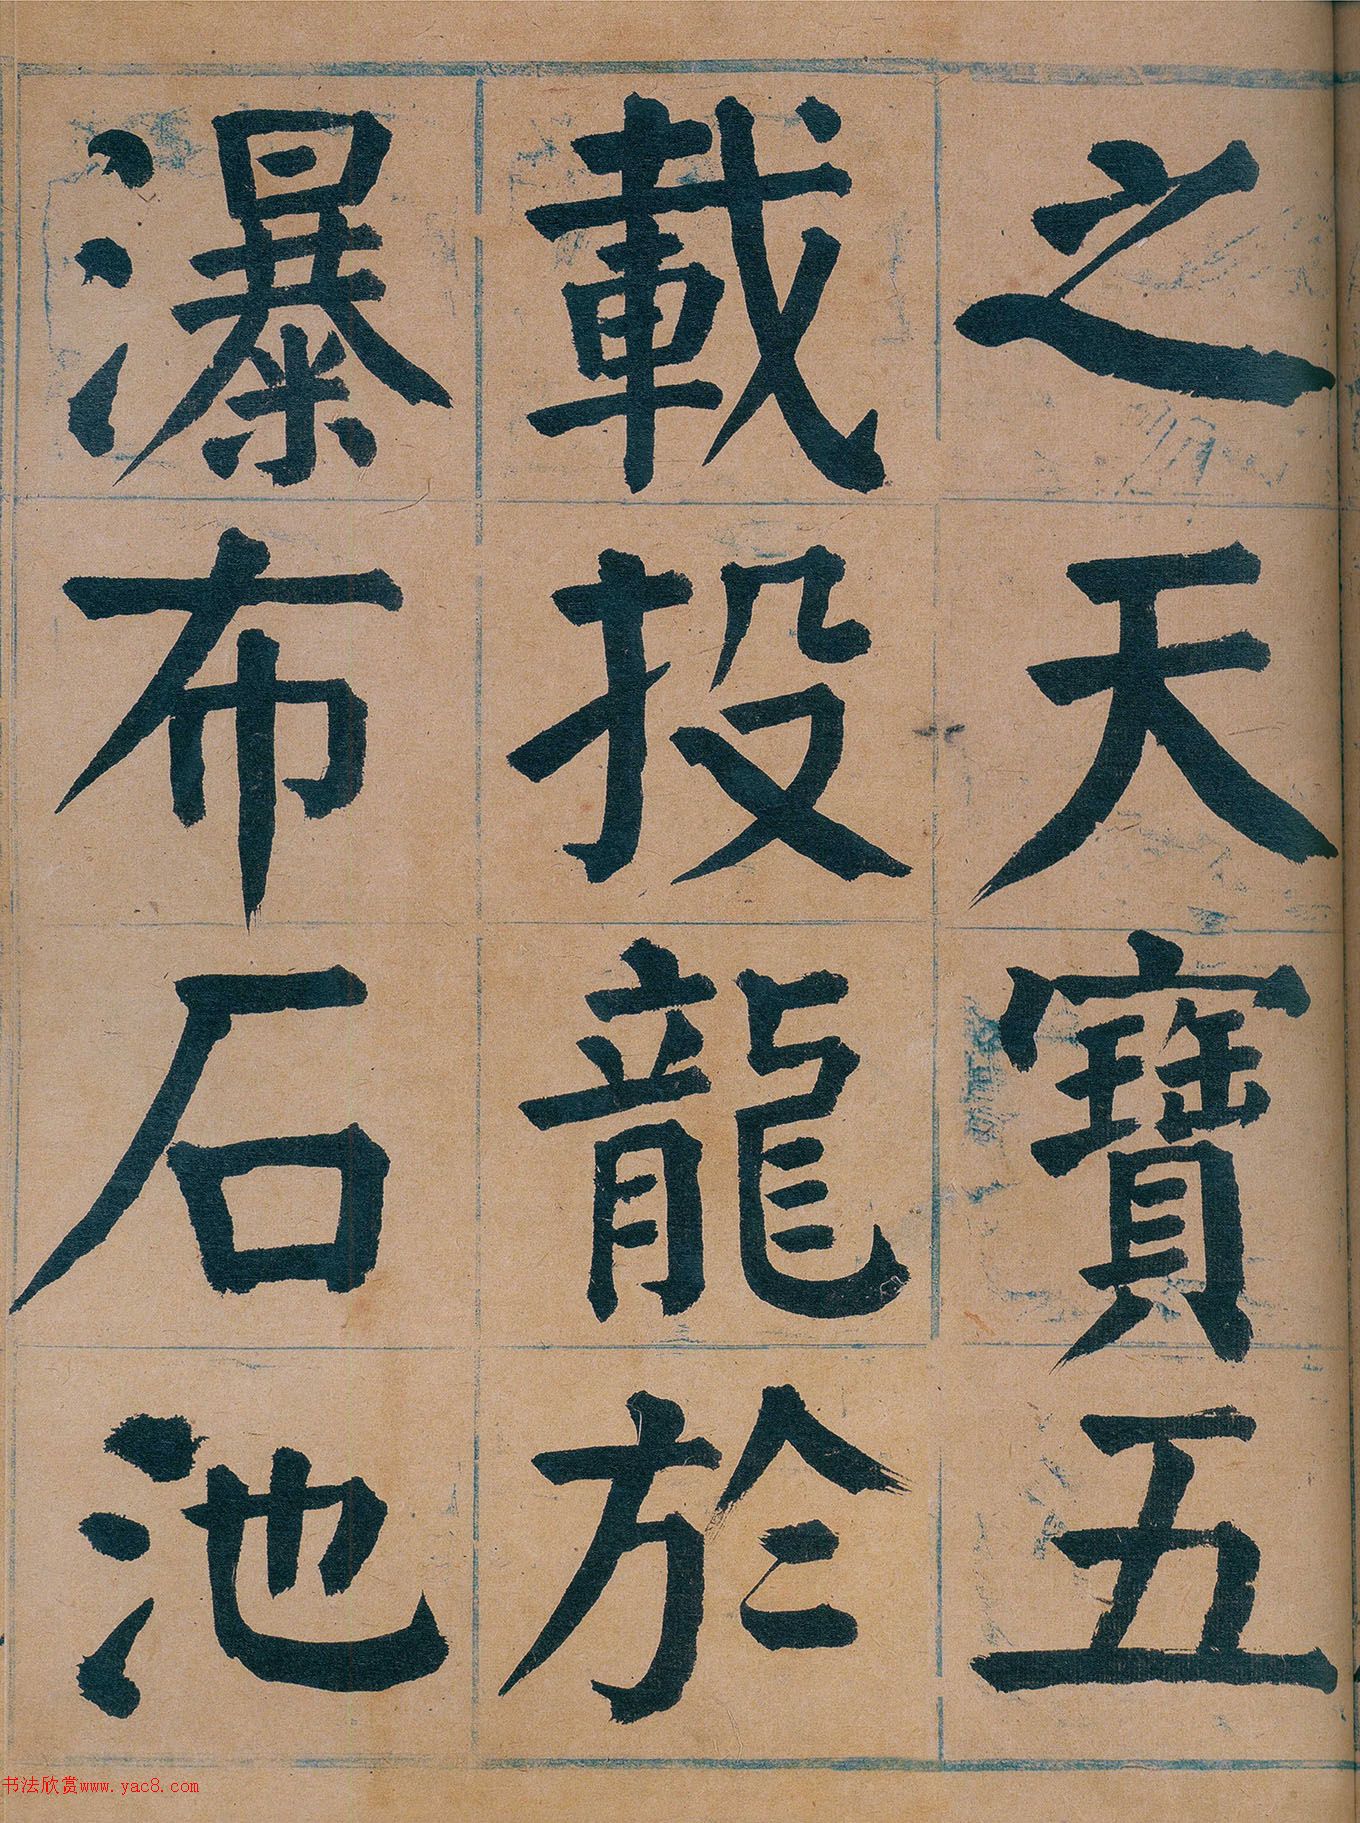 之天寶五
載投龍於
瀑布石池
书法欣赏www.yac8.com